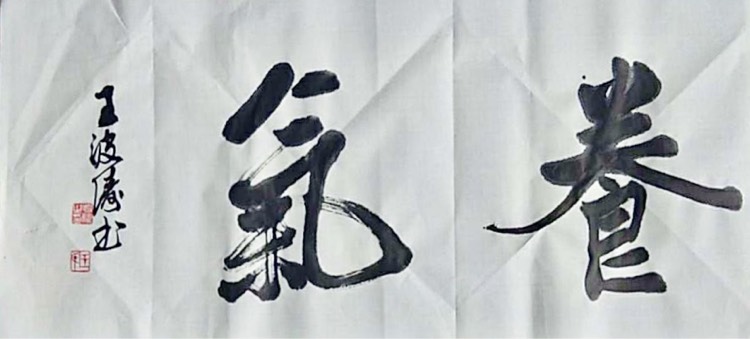 養氣
王波濤书